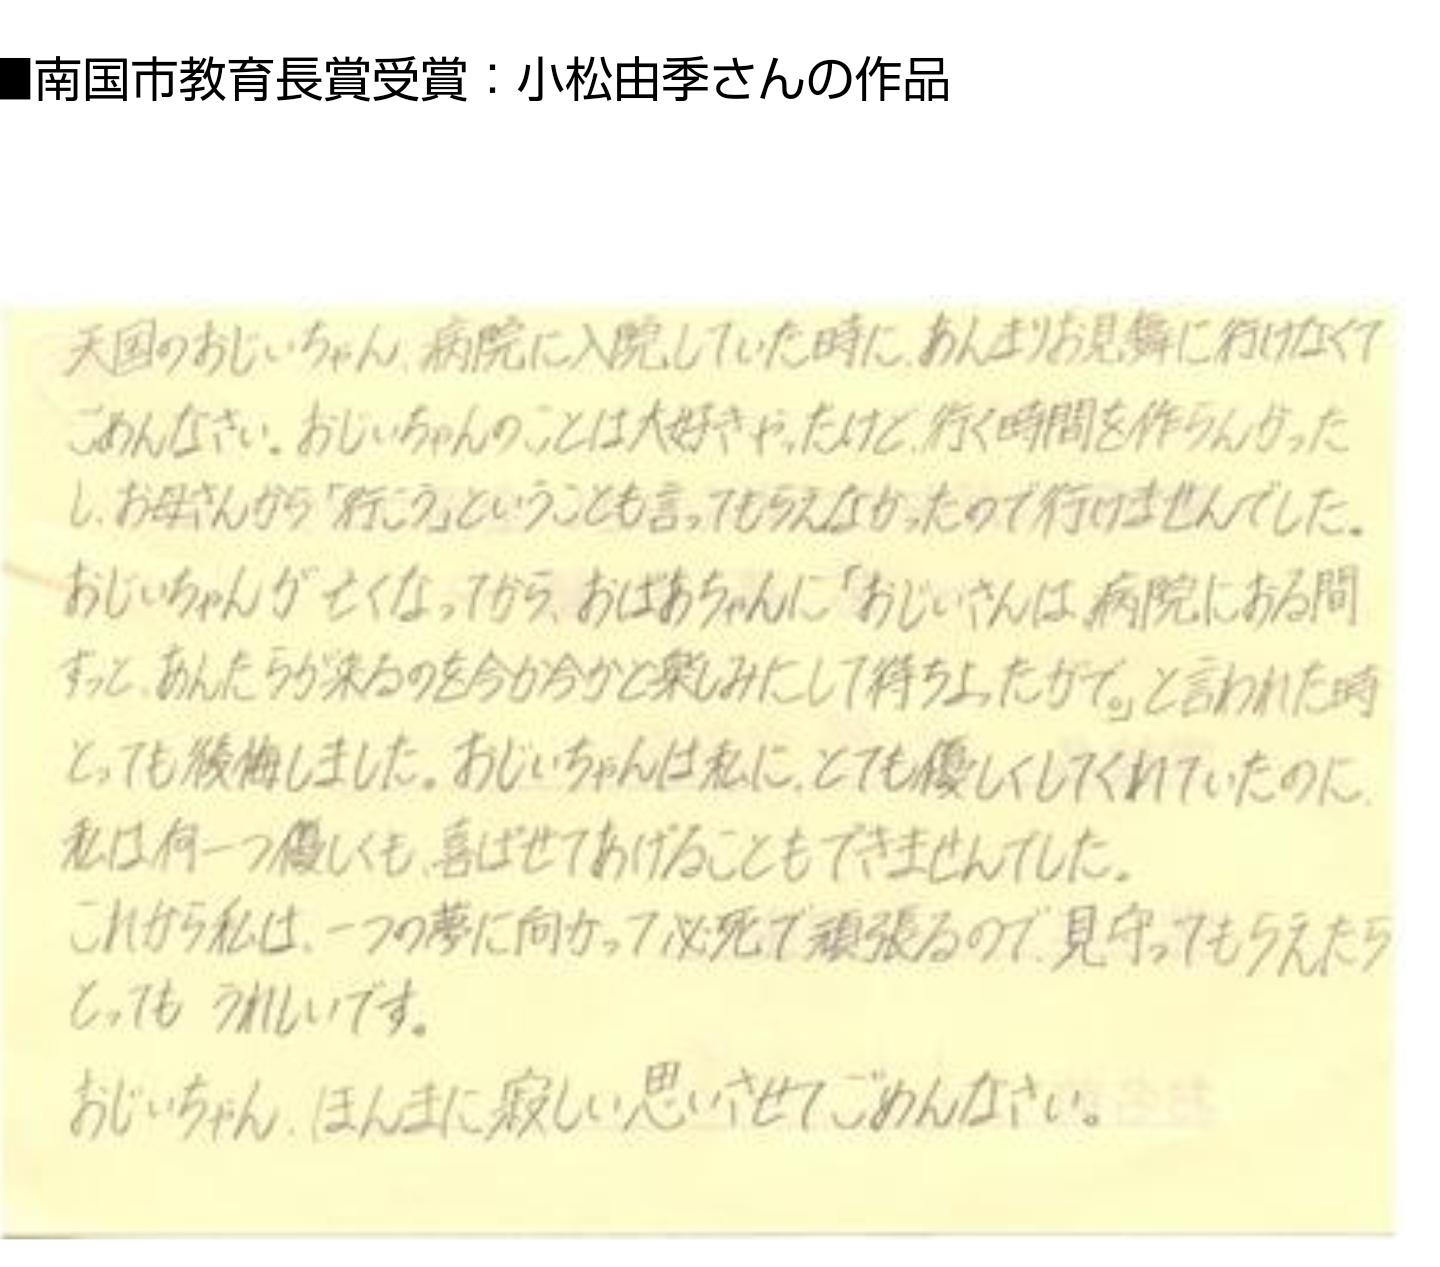 ■南国市教育長賞受賞：小松由季さんの作品
天国のおじいちゃん、病院に入院していた時に、あんまりお見舞に行けなくて
ごめんなさい。おじいちゃんのことは大好きやったけど、行く時間を作らんかった
し、お母さんから「行こう」ということも言ってもらえなかったので行けませんでした。
おじいちゃんが亡くなってから、おばあちゃんに「おじいさんは、病院におる間
ずっと、あんたらが来るのを今か今かと楽しみにして待ちよったがで。」と言われた時
とっても後悔しました。おじいちゃんは私に、とても優しくしてくれていたのに、
私は何一つ優しくも、喜ばせてあげることもできませんでした。
これから私は、一つの夢に向かって必死で頑張るので、見守ってもらえたら
とっても うれしいです。
おじいちゃん、ほんまに寂しい思いさせてごめんなさい。